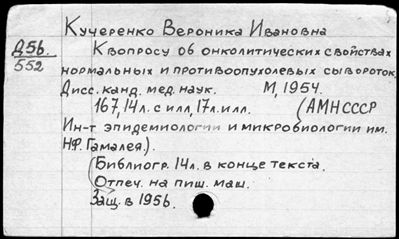 Кучеренко Вероника Ивановна
Д56.
552
К вопросу об онколитических свойствах
нормальных и противоопухолевых сывороток.
Дисс. канд. мед. наук. М, 1954.
167, 14л. с илл, 17л. илл. (АМН СССР
Ин-т эпидемиологии и микробиологии им.
Н.Ф. Гамалея.).
Библиогр. 14л. в конце текста.
Отпеч. на пиш. маш.
Защ. в 1956.